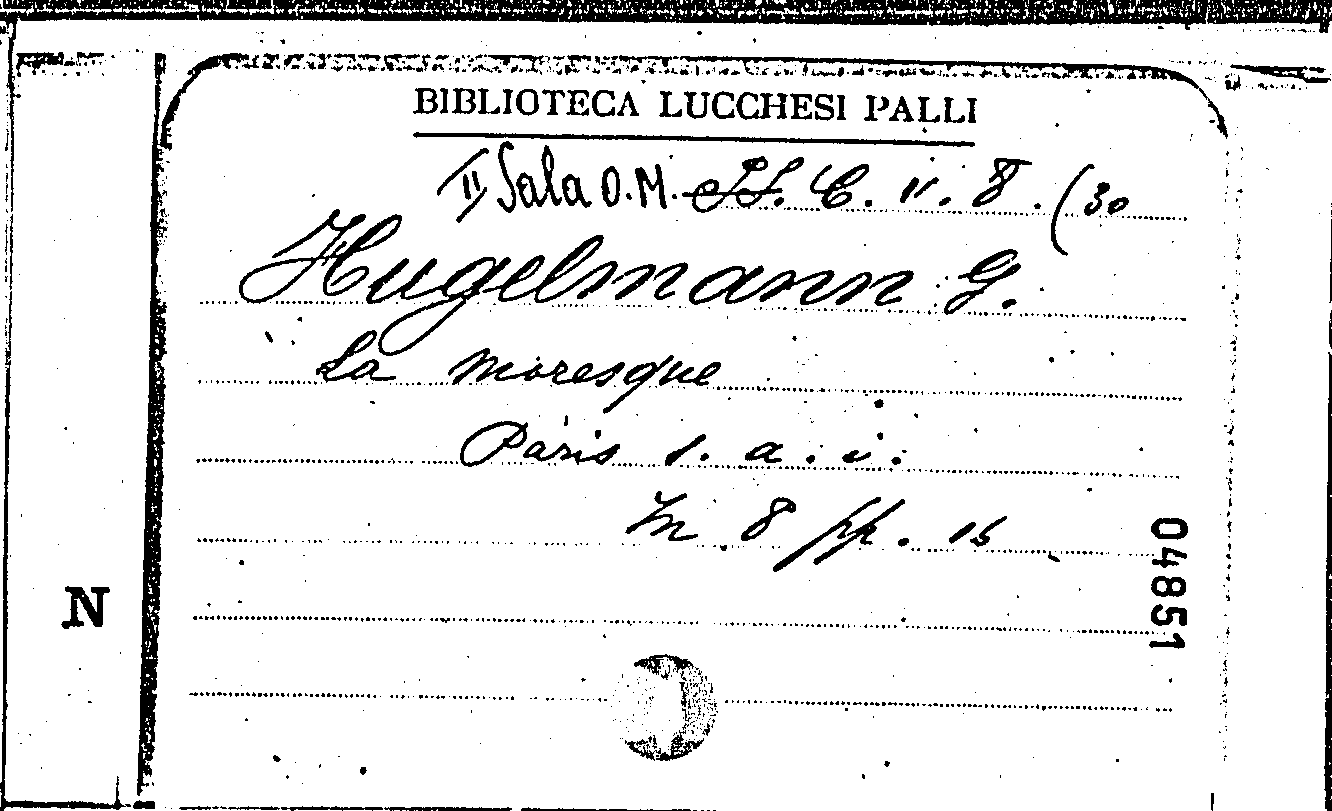 BIBLIOTECA LUCCHESI PALLI
II Sala O.M. C. II. 8. (30
Hugelmann G.
La moresque
Paris s. a. i.
In 8 pp. 15
04851
N